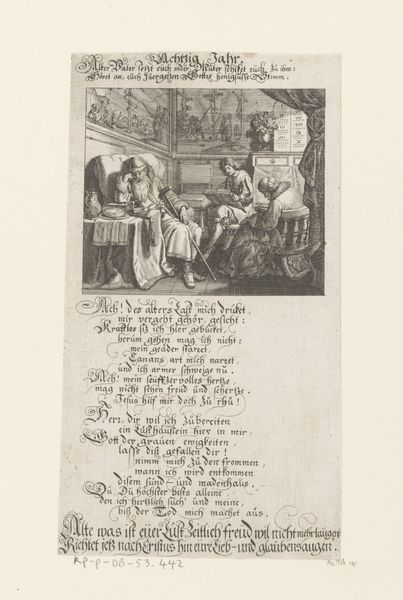 Achtzig Jahr.
Alter Väter setzt euch nider Müter schikt euch zu Im:
Höret an euch zuergetzen Gottes honigsüsse Stimm.
VII
VIII
IX
X
Ach! des alters Last mich drüket,
mir vergeht gehör gesicht:
Kraftlos sitz ich hier gebüket,
herum gehen mag ich nicht:
mein geäder starret,
Canans art mich narret,
und ich armer schweige nu.
Ach! mein seuffzervolles hertze,
mag nicht sehen freud und schertze.
Jesus hilf mir doch zu rhu!
Herr, dir wil ich zubereiten
ein Lusthäuslein hier in mir:
Gott der grauen ewigkeiten,
lasse diß gefallen dir!
nimm mich zu den frommen,
wann ich wird entkommen
disem sünd- und madenhaus.
Du, Du höchster bists alleine,
den ich hertzlich such und meine,
biß der Tod mich machet aus.
Alte was ist euer Lust Zeitlich freud wil nicht mehr taugen
Richtet jetz nach Cristus hin eure Lieb- und glaubensaugen.
RP-P-OB-53.442